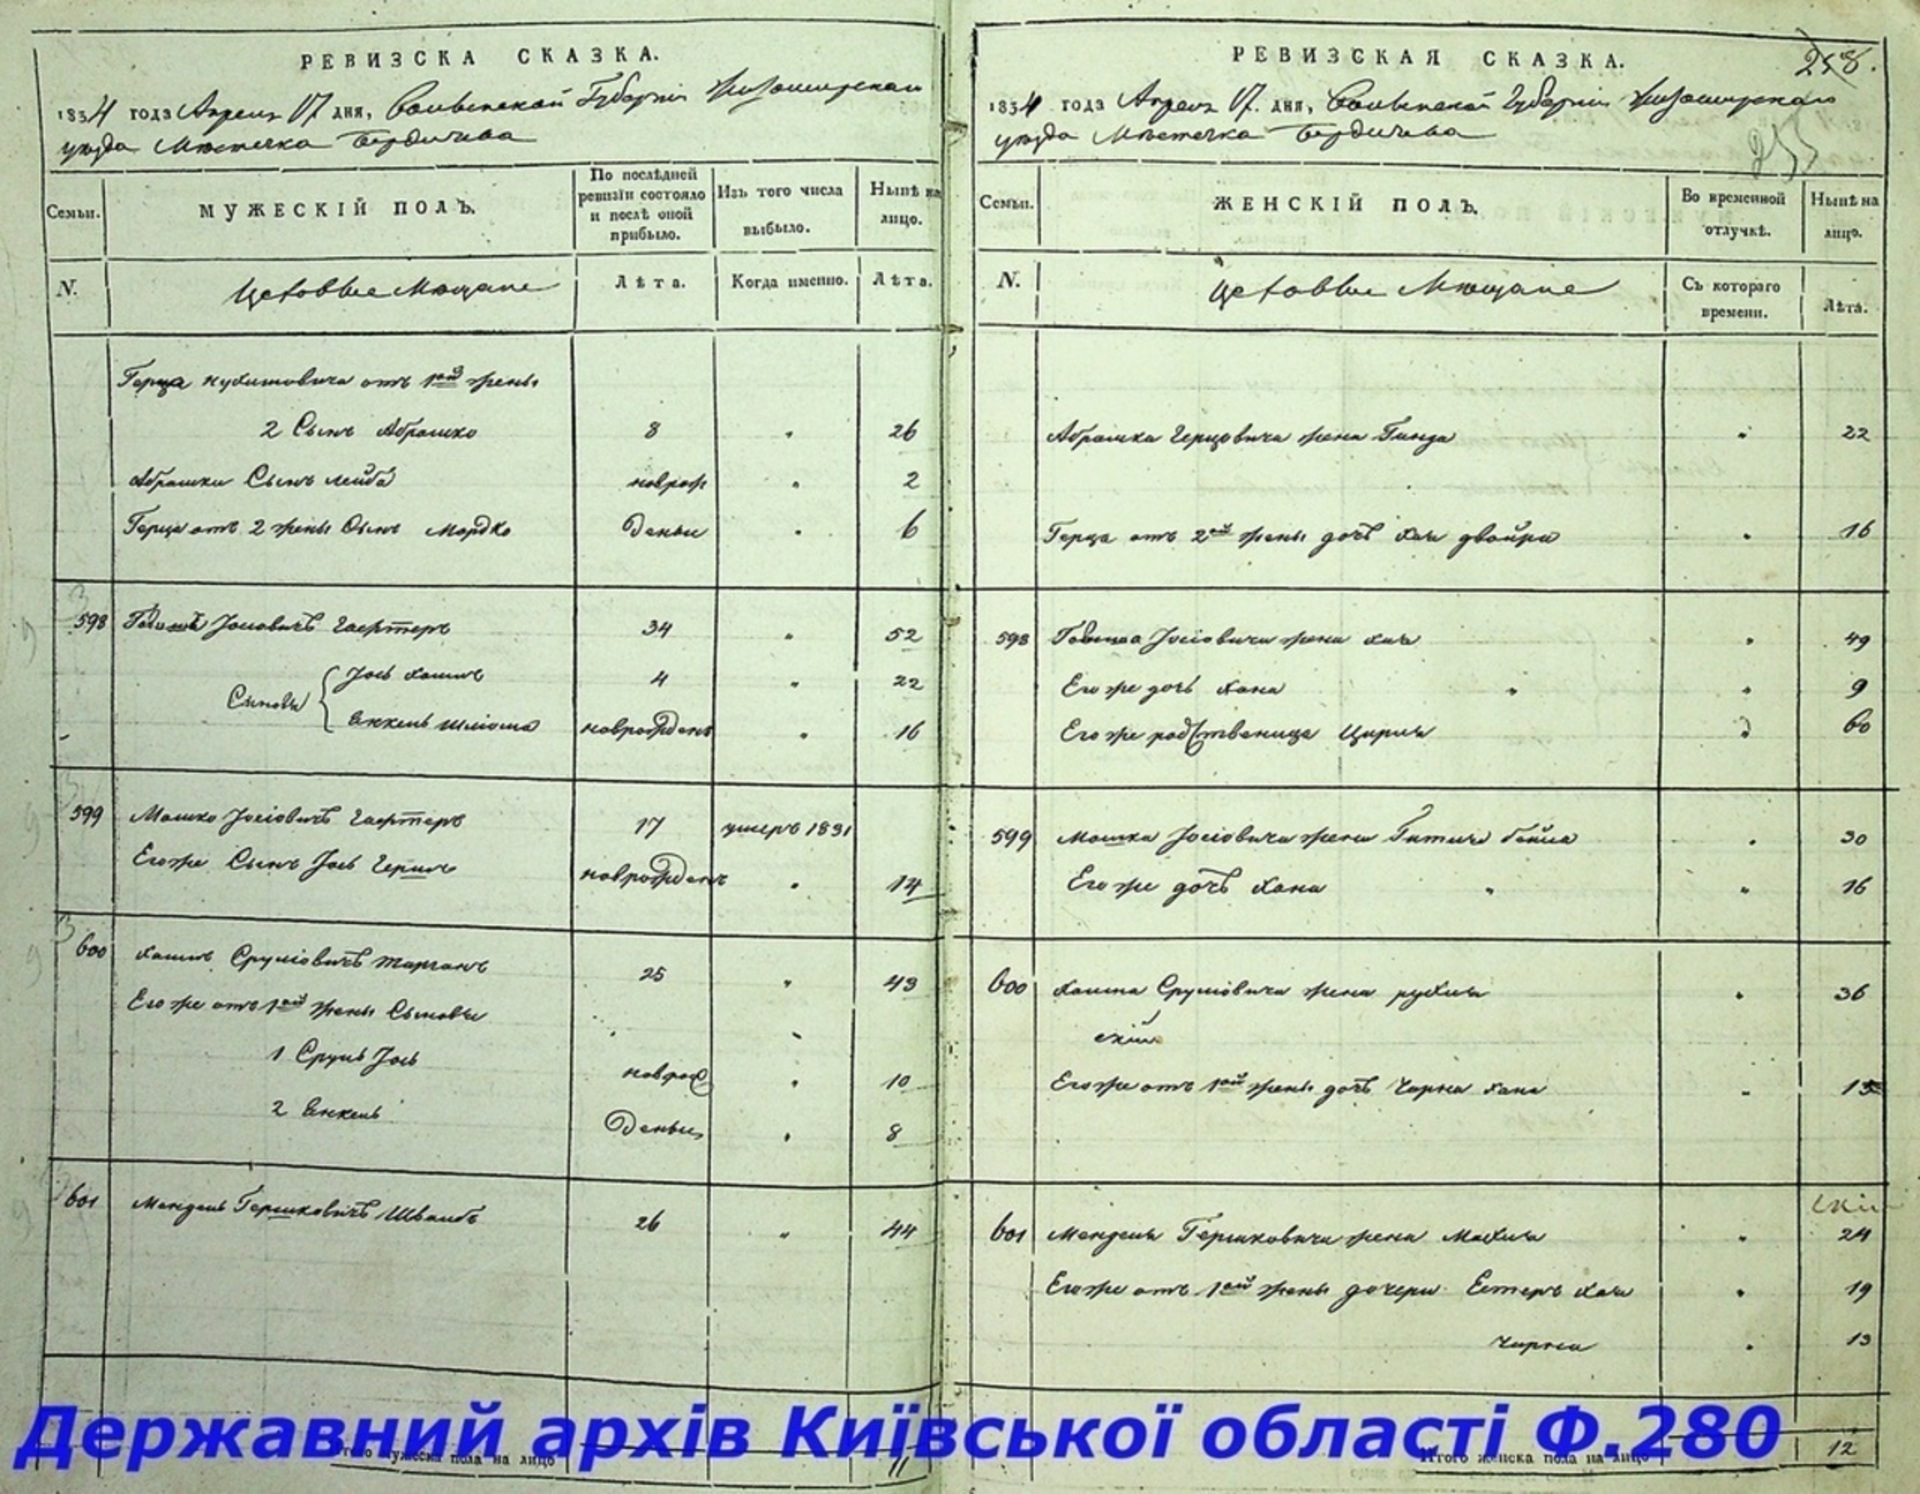 РЕВИЗСКА СКАЗКА.
1834 года Апреля 17 дня, Волынской Губернiи Житомирскаго
уезда Местечка Бердичева
Семьи.
МУЖЕСКІЙ ПОЛЪ.
По послѣдней ревизіи состояло и послѣ оной прибыло.
Изъ того числа выбыло.
Нынѣ на лицо.
N.
Цеховые Мещане
Лѣта.
Когда именно.
Лѣта.
Герца от 1ой жены
2 Сынъ Абрашко 8 " 26
Абрашки Сынъ Лейба новрож " 2
Герца отъ 2 жены Сынъ Мордко денны " 6
598 Іосіовичъ 34 " 52
Сыновья { Іось Хаимъ 4 " 22
Янкель Шліома новорожденъ " 16
599 Мошко Іосіовичъ 17 умеръ 1831
Егоже Сынъ Іось Гершъ новорожденъ " 14
600 Хаимъ Сруліовичъ 25 " 43
Егоже отъ 1ой жены Сыновья
1 Сруль Іось новрож " 10
2 Янкель денны " 8
601 Мендель Гершковичъ Швалбъ 26 " 44
Итого мужеска пола на лицо 11
РЕВИЗСКАЯ СКАЗКА.
258.
1834 года Апреля 17. дня, Волынской Губерніи Житомирскаго
уезда Местечка Бердичева
255
Семьи.
ЖЕНСКІЙ ПОЛЪ.
Во временной отлучкѣ.
Нынѣ на лицо.
N.
Цеховые Мещане
Съ котораго времени.
Лѣта.
Абрашка Герцовича жена Гинда " 22
Герца отъ 2ой жены дочь Хая Двойра " 16
598 Іосіовича жена Хая " 49
Его же дочь Хана " 9
Его же родственница Цирля " 60
599 Мошка Іосіовича жена Бейла " 30
Его же дочь Хана " 16
600 Хаима Сруліовича жена Рухля " 36
Егоже отъ 1ой жены дочь Чарна Хана " 13
601 Менделя Гершковича жена Махля " 24
Егоже отъ 1ой жены дочери Естеръ Хая " 19
Чарна " 13
Итого женска пола на лицо 12
Державний архів Київської області Ф.280